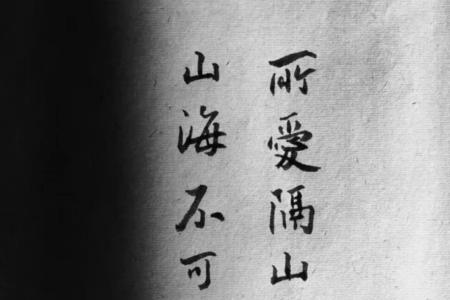 所愛隔山
山海不可